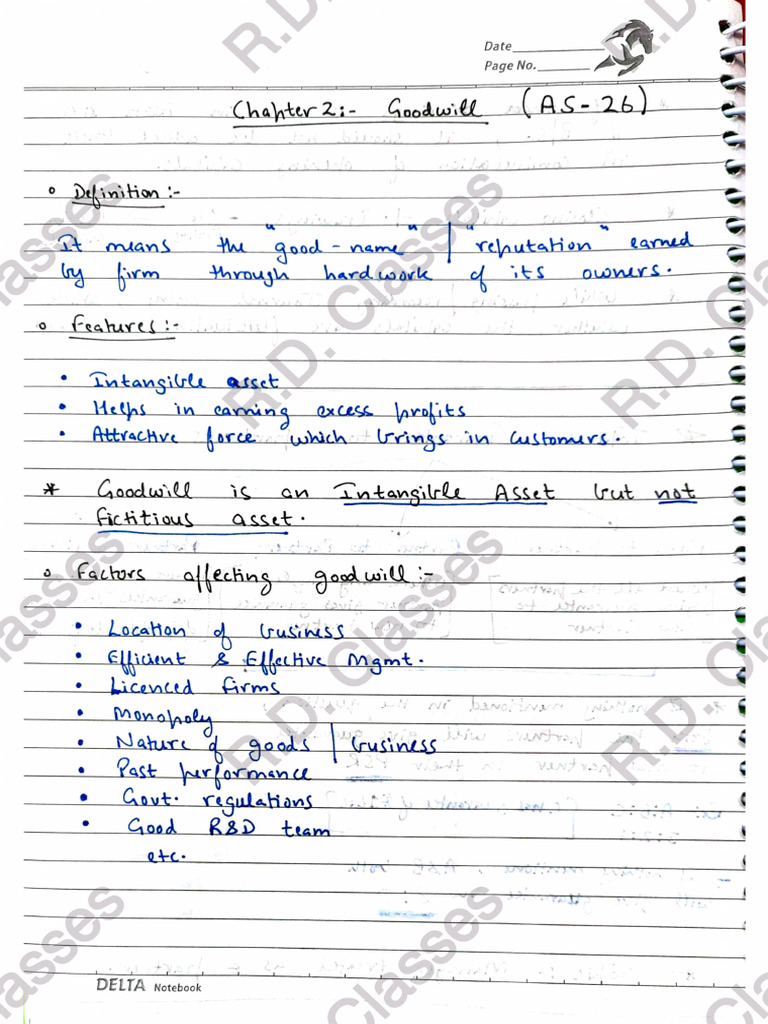 Date
Page No.
Chapter 2:- Goodwill (AS-26)
○ Definition :-
It means the "good-name" | "reputation" earned
by firm through hardwork of its owners.
○ Features :-
• Intangible asset
• Helps in earning excess profits
• Attractive force which brings in customers.
* Goodwill is an Intangible Asset but not
fictitious asset.
○ Factors affecting goodwill :-
• Location of business
• Efficient & Effective Mgmt.
• Licenced firms
• Monopoly
• Nature of goods | business
• Past performance
• Govt. regulations
• Good R&D team
etc.
DELTA Notebook
R.D. Classes